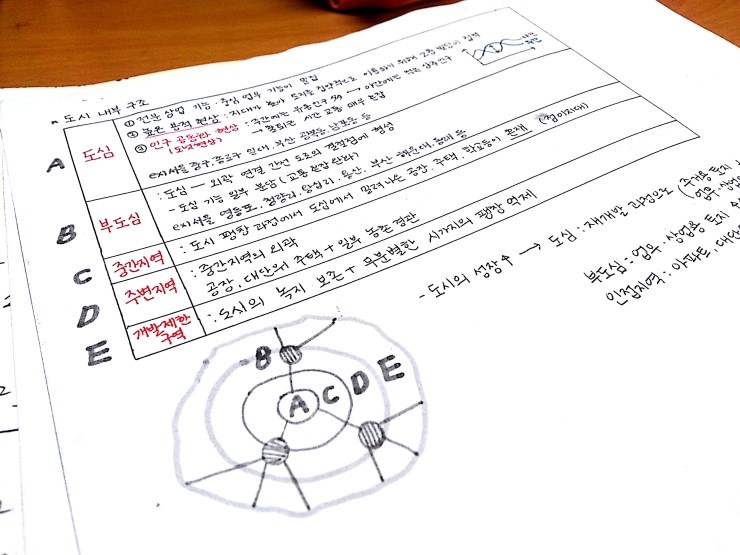 * 도시 내부 구조
A 도심
① 전문 상업 기능, 중심 업무 기능이 밀집
② 높은 용적 현상 : 지대가 높아 토지를 집약적으로 이용하기 위해 고층 빌딩이 밀집
③ 인구 공동화 현상 : 주간에는 유동인구 많 → 야간에는 적은 상주인구
(도넛현상) → 출퇴근 시간 교통 매우 혼잡
ex) 서울 중구·종로구 일대, 부산 광복동·남포동 등
B 부도심
: 도심 — 외곽 연결 간선 도로의 결절점에 형성
- 도심 기능 일부 분담 (교통 혼잡 완화)
ex) 서울 영등포, 청량리, 왕십리, 용산, 부산 해운대, 동래 등
C 중간지역
: 도시 팽창 과정에서 도심에서 밀려나온 공장, 주택, 학교등이 혼재 (점이지대)
D 주변지역
: 중간지역의 외곽
공장, 대단위 주택 + 일부 농촌경관
E 개발제한
구역
: 도시의 녹지 보존 + 무분별한 시가지의 팽창 억제
- 도시의 성장↑ → 도심 : 재개발 과정으로
부도심 : 업무, 상업용 토지
인접지역 : 아파트, 대단
B
A C D E